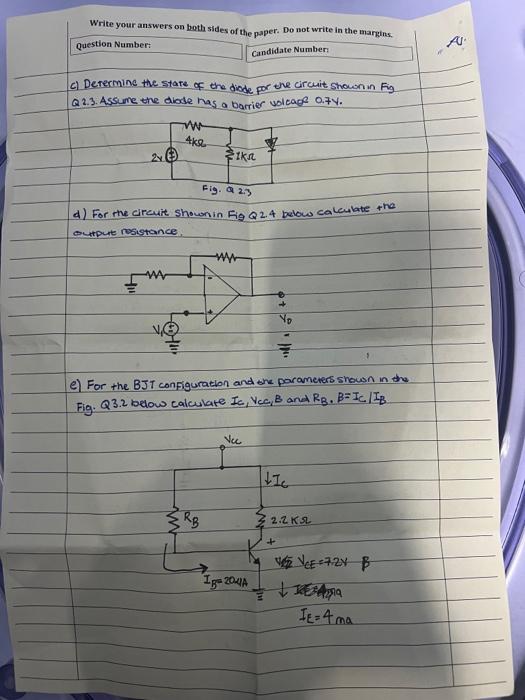 Write your answers on both sides of the paper. Do not write in the margins.
Question Number:
Candidate Number:
c) Determine the state of the diode for the circuit shown in Fig
Q2.3. Assume the diode has a barrier voltage 0.7V.
4kΩ
2v
1kΩ
Fig. Q 2.3
d) For the circuit shown in Fig Q2.4 below calculate the
output resistance.
V
+
-
+
Vo
-
e) For the BJT configuration and the parameters shown in the
Fig. Q3.2 below calculate Ic, Vcc, B and RB. B=Ic/IB
Vcc
↓Ic
RB
2.2 KΩ
+
VCE=7.2V B
IB=20uA
↓
IE=4ma